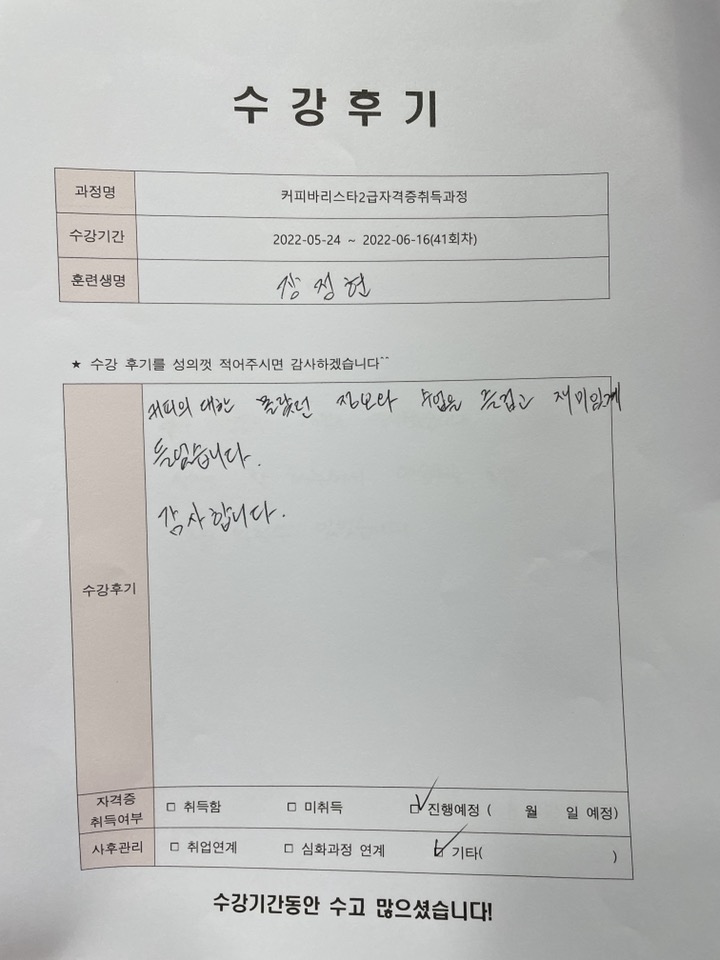 수강후기
과정명 커피바리스타2급자격증취득과정
수강기간 2022-05-24 ~ 2022-06-16(41회차)
훈련생명 장정현
★ 수강 후기를 성의껏 적어주시면 감사하겠습니다^^
커피의 대한 몰랐던 정보와 수업을 즐겁고 재미있게
들었습니다.
감사합니다.
수강후기
자격증 취득여부 □ 취득함 □ 미취득 □ 진행예정 ( 월 일 예정)
사후관리 □ 취업연계 □ 심화과정 연계 □ 기타( )
수강기간동안 수고 많으셨습니다!